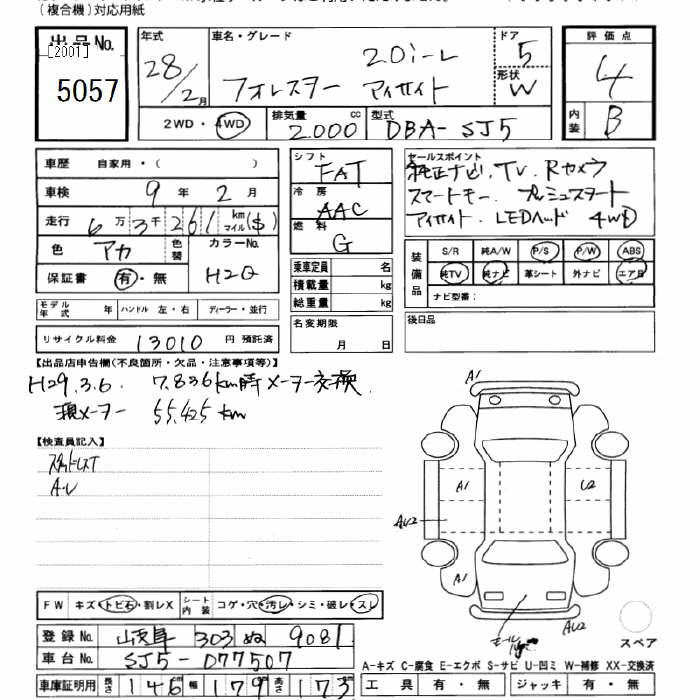 (複合機)対応用紙
出品No.
[200T]
5057
年式
28/2月
車名・グレード
2.0i-L
フォレスター アイサイト
ドア
5
形状
W
評価点
4
内装
B
2WD・4WD
排気量
2.000 cc
型式
DBA-SJ5
車歴 自家用・( )
車検 9年 2月
走行 6万3千261 km マイル($)
色 アカ 色替 カラーNo. H2Q
保証書 有・無
モデル年式 年 ハンドル 左・右 ディーラー・並行
リサイクル料金 13010 円 預託済
シフト
FAT
冷房
AAC
燃料
G
乗車定員 名
積載量 kg
総重量 kg
名変期限
月 日
セールスポイント
純正ナビ, TV, Rカメラ
スマートキー. プッシュスタート
アイサイト. LEDヘッド 4WD
装備品
S/R 純A/W P/S P/W ABS
純TV 純ナビ 革シート 外ナビ エアB
ナビ型番:
後日品
【出品店申告欄(不良箇所・欠品・注意事項等)】
H29.3.6. 7.836km時メーター交換.
現メーター 55,425km
【検査員記入】
スタッドレスT
A・U
A1
A1
U2
AU2
A1
AU2
スペア
FW キズ・トビ石・割レX シート内装 コゲ・穴・汚レ・シミ・破レ・スレ
登録No. 岐阜 303 ぬ 9081
車台No. SJ5-077507
車庫証明用 長さ 146 cm 幅 179 cm 高さ 173
A-キズ C-腐食 E-エクボ S-サビ U-凹ミ W-補修 XX-交換済
工具 有・無 ジャッキ 有・無